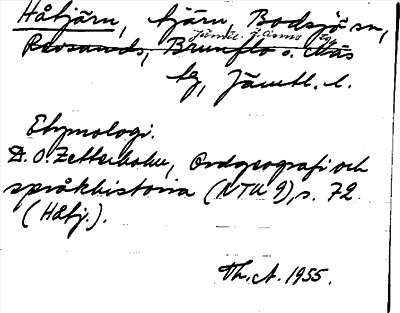 Håtjärn, tjärn, Bodsjö sn,
Revsunds, Brunflo o. Näs
tg, Jämtl. l.
Etymologi.
D. O. Zetterholm, Ordgeografi och
språkhistoria (NTU 9), s. 72
(Håtj.).
Th. A. 1955.